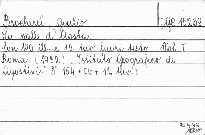 Brocherel, Giulio
La valle d'Aosta.
Con 120 ill. e 14 tav. fuori testo. Vol. I
Roma (1932). Istituto Geografico de
Agostini. 8° 164 + CC + 14 tav.